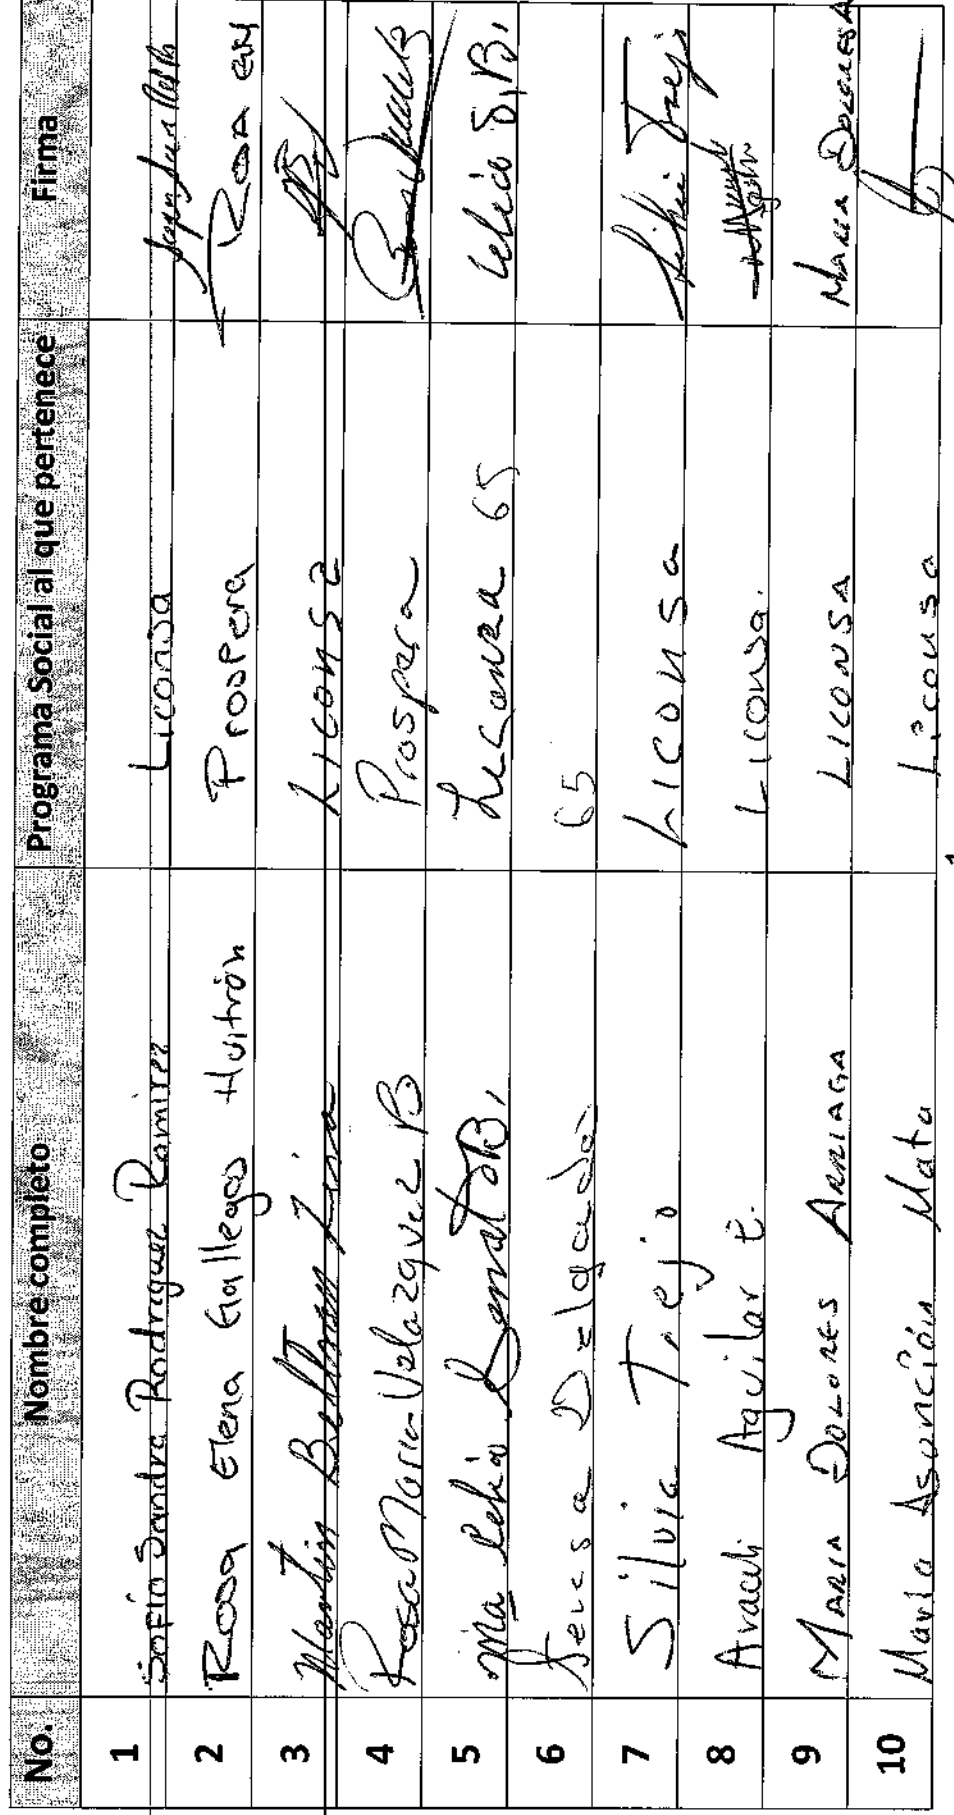 No. Nombre completo Programa Social al que pertenece Firma
1 Sofia Sandra Rodriguez Ramirez Liconsa
2 Rosa Elena Gallegos Huitrón Prospera Rosa EGH
3 Martin Beltran Lira Liconsa
4 Rosa Maria Velazquez B Prospera
5 Ma Lelia B. Liconsa 65 Lelia S.B.
6 Teresa Delgado 65
7 Silvia Trejo Liconsa Silvia Trejo
8 Araceli Aguilar E. Liconsa.
9 MARIA DOLORES ARRIAGA LICONSA MARIA DOLORES A
10 Maria Asunción Mata Liconsa